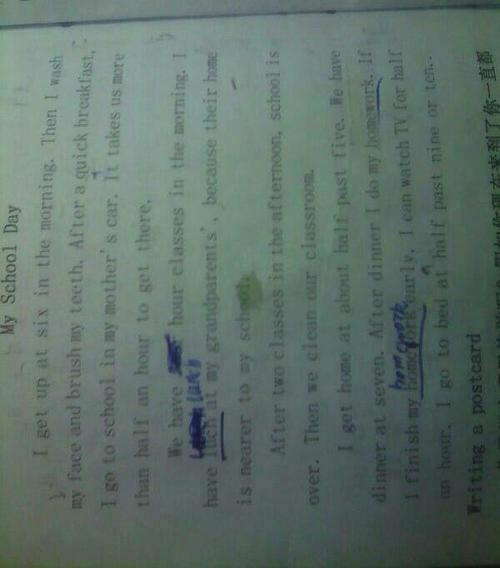 My School Day
I get up at six in the morning. Then I wash
my face and brush my teeth. After a quick breakfast,
I go to school in my mother's car. It takes us more
than half an hour to get there.
We have hour classes in the morning. I
have luch at my grandparents', because their home
is nearer to my school.
After two classes in the afternoon, school is
over. Then we clean our classroom.
I get home at about half past five. We have
dinner at seven. After dinner I do my homework. If
I finish my homework early, I can watch TV for half
an hour. I go to bed at half past nine or ten..
Writing a postcard